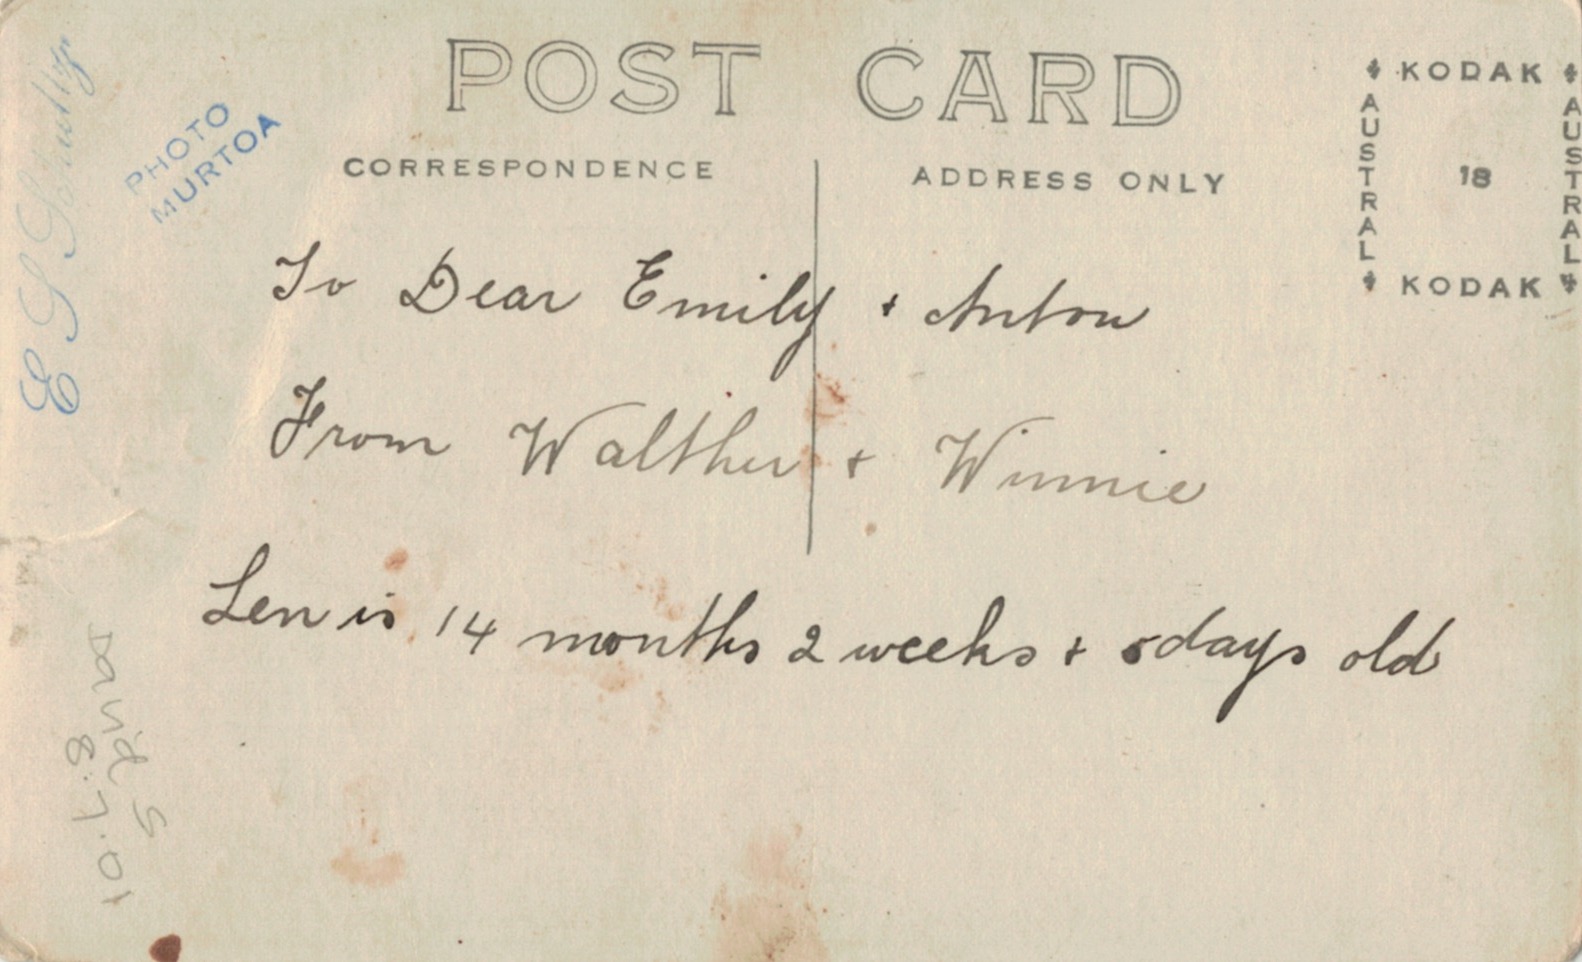 POST CARD
CORRESPONDENCE
ADDRESS ONLY
KODAK
AUSTRAL
18
AUSTRAL
KODAK
E S Schultz
PHOTO
MURTOA
To Dear Emily + Anton
From Walther + Winnie
Len is 14 months 2 weeks + 5 days old
David S
8.7.01